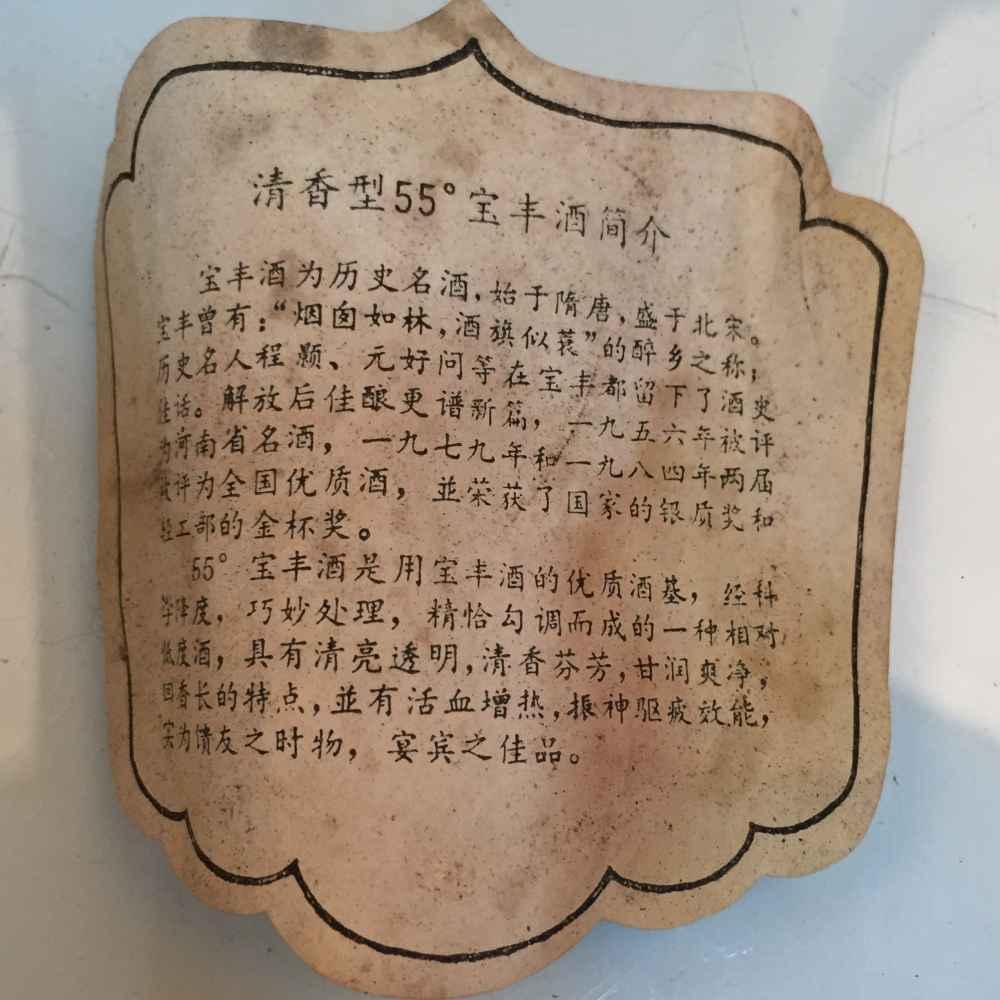 清香型55°宝丰酒简介
宝丰酒为历史名酒，始于隋唐，盛于北宋。
宝丰曾有：“烟囱如林，酒旗似蓑”的醉乡之称；
历史名人程颢、元好问等在宝丰都留下了酒史
佳话。解放后佳酿更谱新篇，一九五六年被评
为河南省名酒，一九七九年和一九八四年两届
被评为全国优质酒，並荣获了国家的银质奖和
轻工部的金杯奖。
55°宝丰酒是用宝丰酒的优质酒基，经科
学降度，巧妙处理，精恰勾调而成的一种相对
低度酒，具有清亮透明，清香芬芳，甘润爽净，
回香长的特点，並有活血增热，振神驱疲效能，
实为馈友之时物，宴宾之佳品。